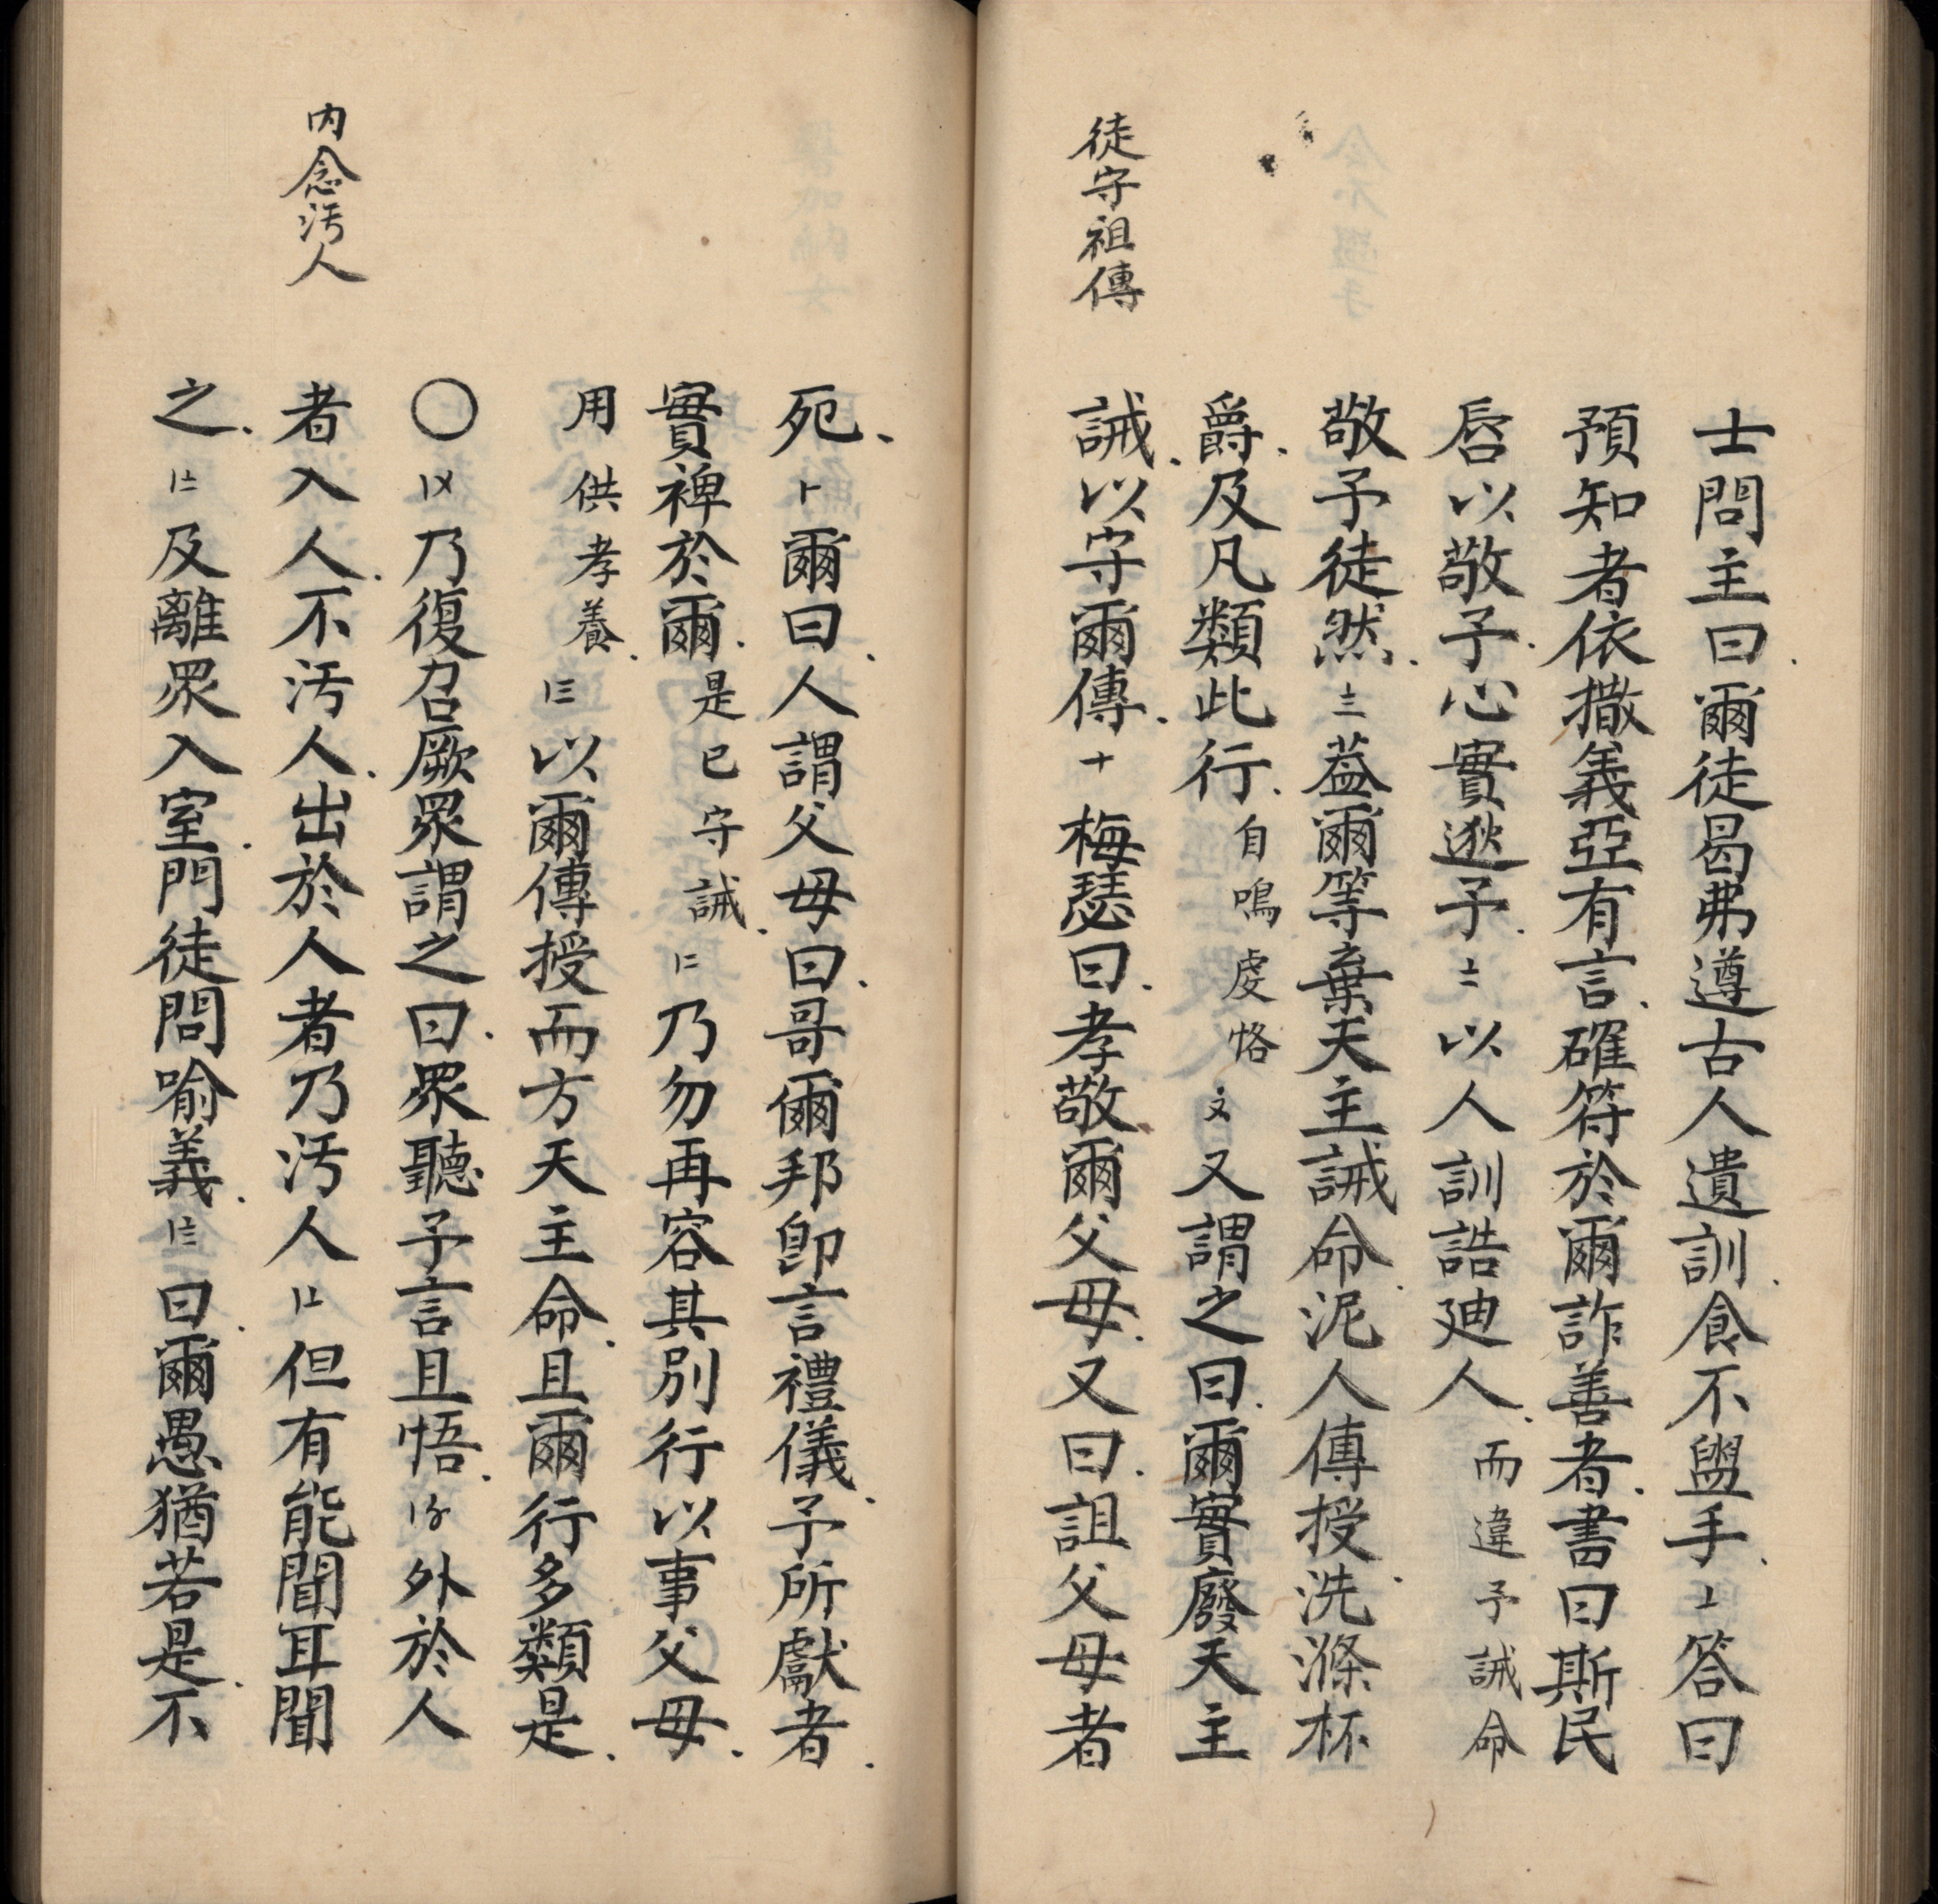 士問主曰爾徒曷弗遵古人遺訓食不盥手〦答曰
預知者依撒義亞有言確符於爾詐善者書曰斯民
唇以敬予心實逖予〧以人訓誥廸人而違予誡命
敬予徒然〨葢爾等棄天主誡命泥人傳授洗滌杯
爵及凡類此行自鳴虔恪〩又謂之曰爾實廢天主
徒守祖傳
誡以守爾傳十梅瑟曰孝敬爾父母又曰詛父母者
死〡一爾曰人謂父母曰哥爾邦卽言禮儀予所獻者
實裨於爾是已守誡〡二乃勿再容其別行以事父母
用供孝養〡三以爾傳授而方天主命且爾行多類是
〇〡〤乃復召厥眾謂之曰眾聽予言且悟〡〥外於人
內念污人
者入人不污人出於人者乃污人〡〦但有能聞耳聞
之〡〧及離眾入室門徒問喻義〡〨曰爾愚猶若是不